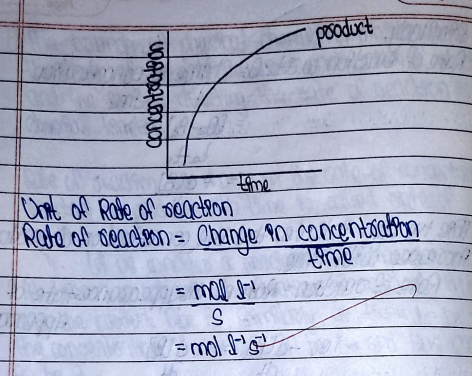 product
concentration
time
Unit of Rate of reaction
Rate of reaction = Change in concentration
time
= mol l⁻¹
S
= mol l⁻¹ s⁻¹